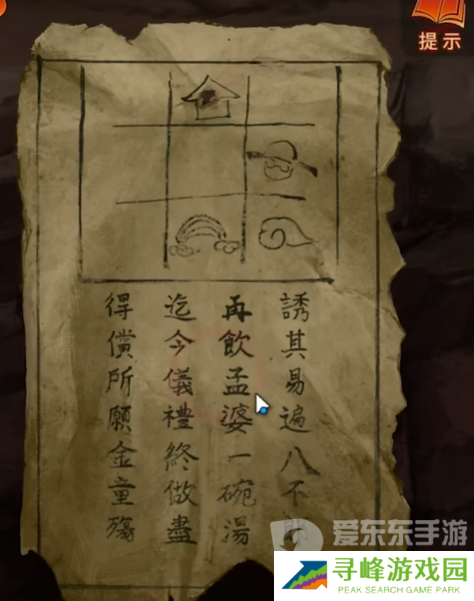 提示
誘其易遍八不
再飲孟婆一碗湯
迄今儀禮終做盡
得償所願金童殤
爱东东手游
寻峰游戏园
PEAK SEARCH GAME PARK